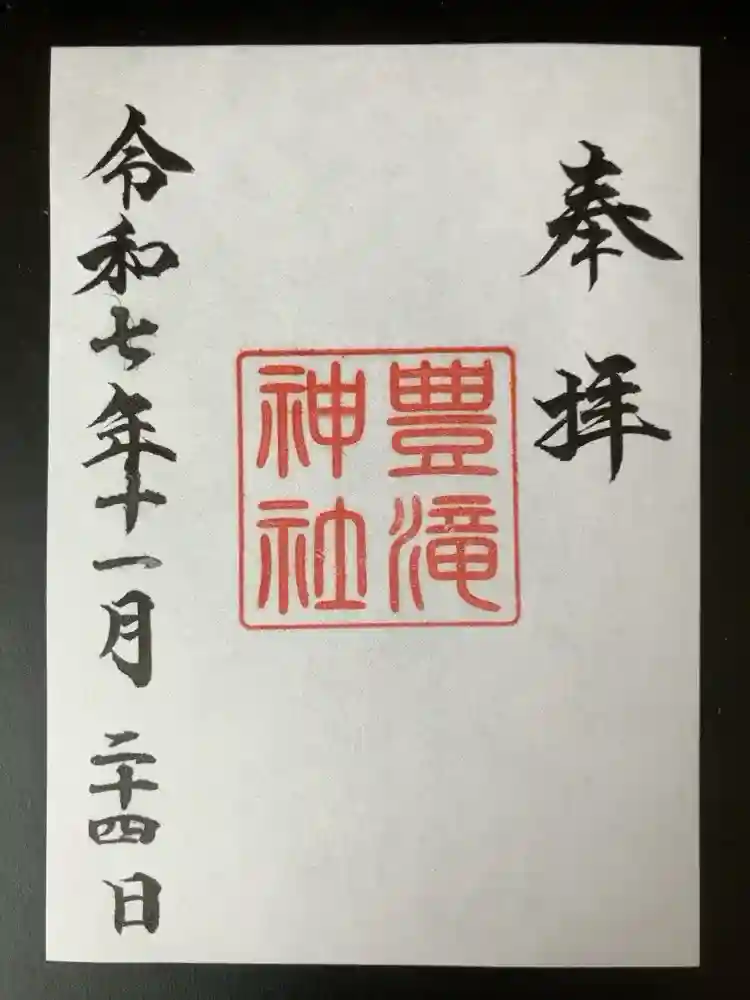 奉拝
豊滝
神社
令和七年十一月二十四日